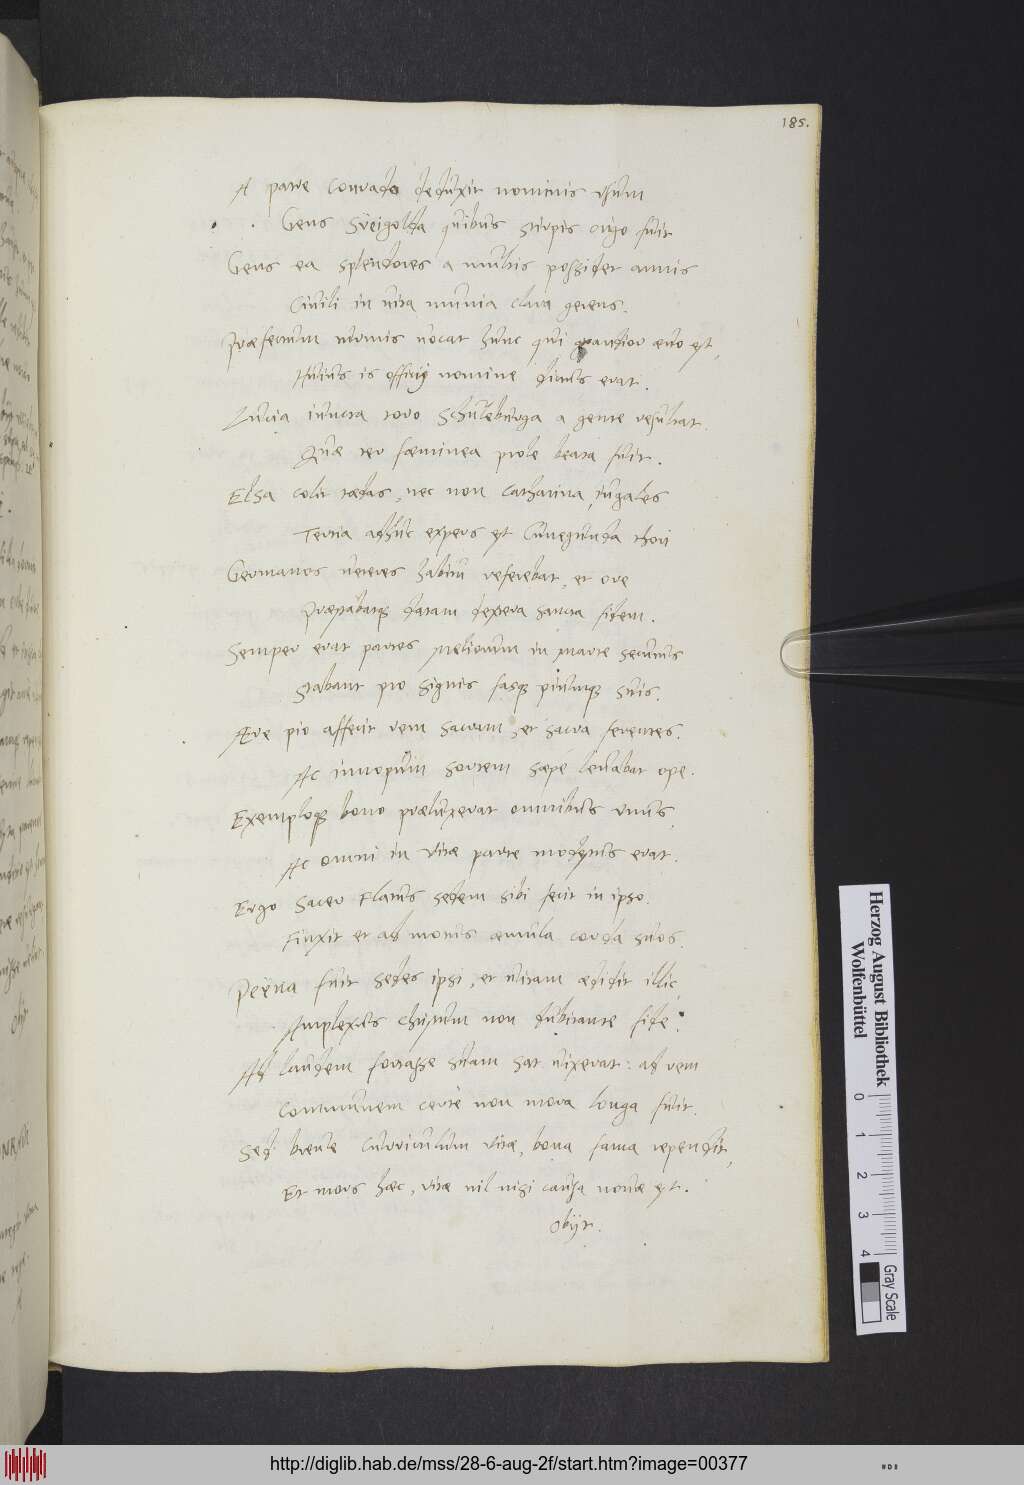 185.
A patre Conrado deduxit nominis usum
Gens Sveigolda quibus stirpis origo fuit
Gens ea splendores a multis possidet annis
Civili in vita munia clara gerens.
Præfectum nummis vocat hunc qui grandior ævo est,
Huius is officij nomine dictus erat.
Lucia iuncta toro Schuleburga a gente resultat.
Quæ ter fæminea prole beata fuit.
Elsa colit tædas, nec non Catharina iugales
Tertia adhuc expers est Cunegunda thori
Germanos veteres habitu referebat, et ore
Præstabatque datam dextera sancta fidem.
Semper erat partes meliorum in parte secutus
Stabant pro signis fasque piumque suis.
Ære pio affecit rem sacram, et sacra ferentes.
Ac inopum sortem sæpe levabat ope.
Exemploque bono præluxerat omnibus unus,
Ac omni in vitæ parte modestus erat.
Ergo Sacer Flatus sedem sibi fecit in ipso.
Finxit et ad motus æmula corda suos.
Peëna fuit sedes ipsi, et vitam ædidit illic,
Amplexus Christum non dubitante fide.
Ad laudem fortasse suam sat vixerat: ad rem
Communem certè non mora longa fuit.
Sed breve curriculum vitæ, bona fama rependit,
Et mors hæc, vitæ nil nisi causa novæ est.
Obijt.
Herzog August Bibliothek
Wolfenbüttel
0 1 2 3 4
Gray Scale
http://diglib.hab.de/mss/28-6-aug-2f/start.htm?image=00377